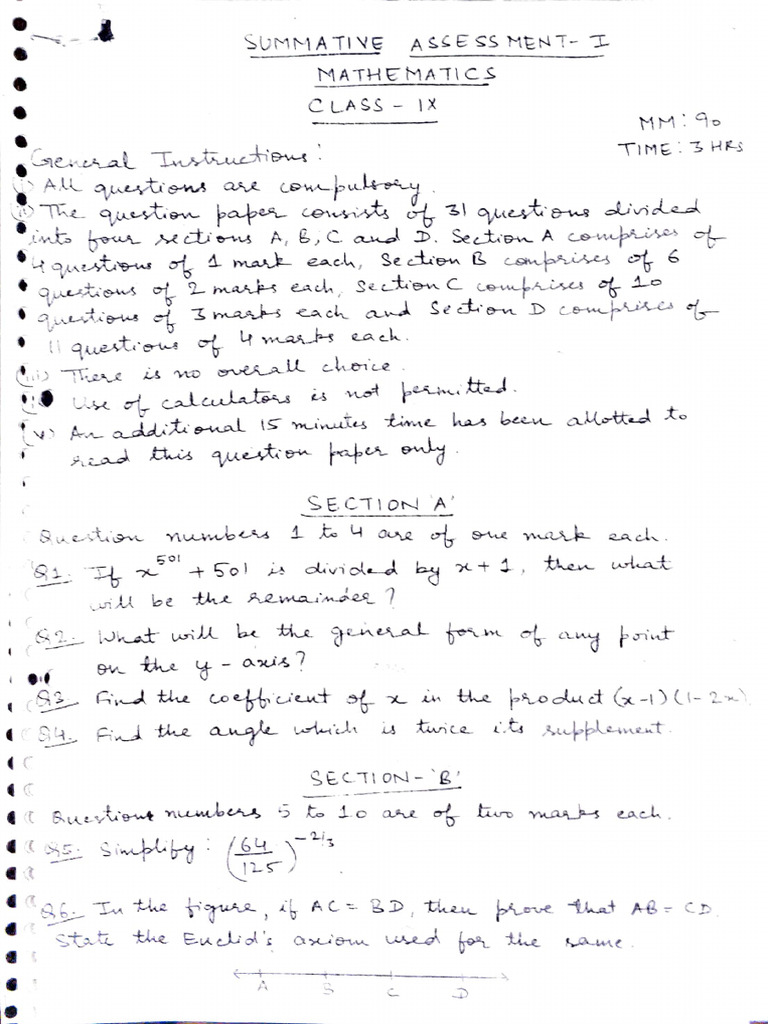 SUMMATIVE ASSESSMENT- I
MATHEMATICS
CLASS - IX
MM: 90
TIME: 3 HRS
General Instructions:
(i) All questions are compulsory.
(ii) The question paper consists of 31 questions divided
into four sections A, B, C and D. Section A comprises of
4 questions of 1 mark each, Section B comprises of 6
questions of 2 marks each, Section C comprises of 10
questions of 3 marks each and Section D comprises of
11 questions of 4 marks each.
(iii) There is no overall choice.
Use of calculators is not permitted.
(v) An additional 15 minutes time has been allotted to
read this question paper only.
SECTION 'A'
Question numbers 1 to 4 are of one mark each.
Q1. If x^501 + 501 is divided by x+1, then what
will be the remainder?
Q2. What will be the general form of any point
on the y-axis?
Q3. Find the coefficient of x in the product (x-1)(1-2x)
Q4. Find the angle which is twice its supplement.
SECTION-'B'
Questions numbers 5 to 10 are of two marks each.
Q5. Simplify: (64/125)^-2/3
Q6. In the figure, if AC = BD, then prove that AB = CD.
State the Euclid's axiom used for the same.
A B C D